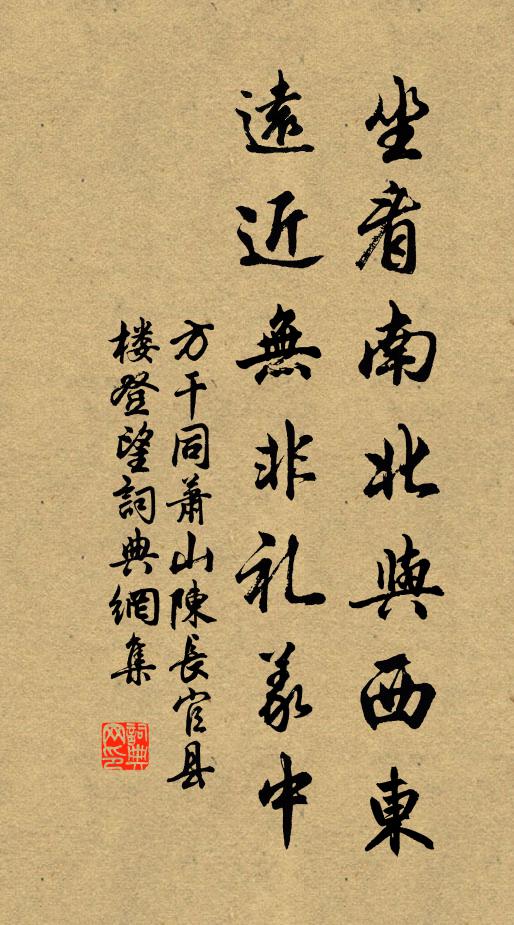 坐看南北與西東
遠近無非礼義中
方干同蕭山陳長官县
楼登望詞典網集
詞典网印